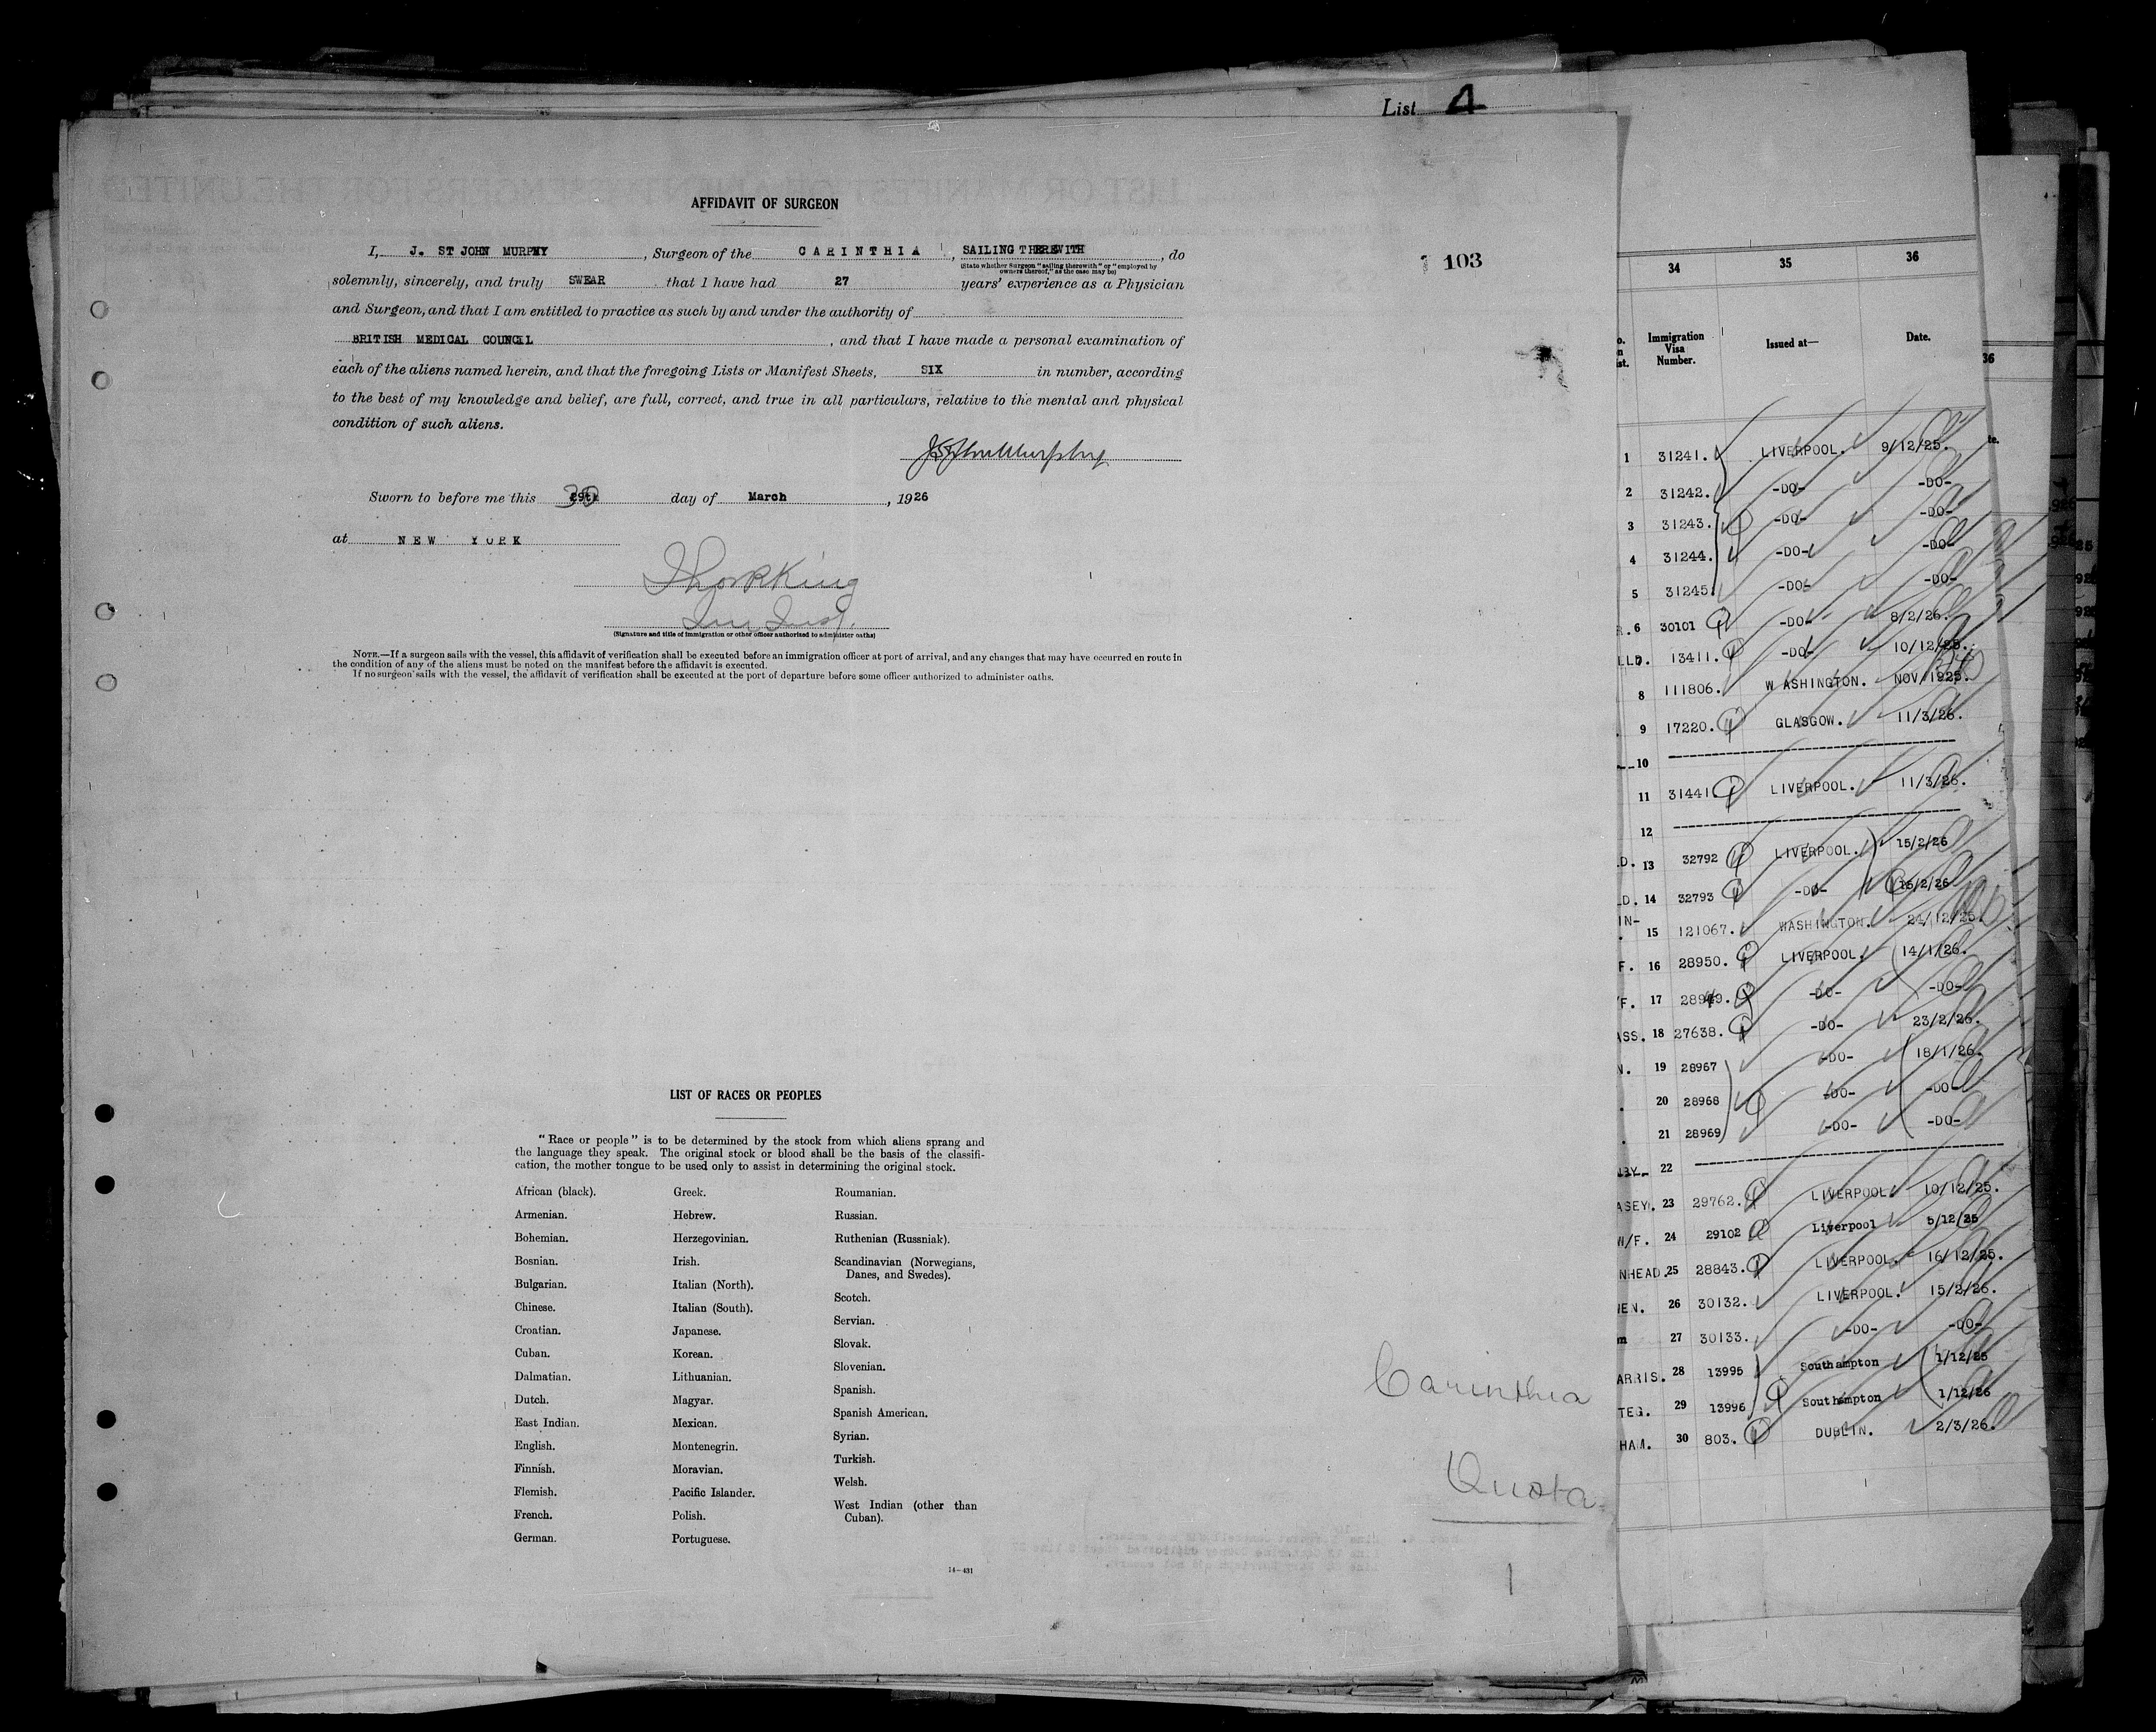 List 4
AFFIDAVIT OF SURGEON
I, J. ST JOHN MURPHY, Surgeon of the CARINTHIA, SAILING THEREWITH, do
(State whether Surgeon "sailing therewith" or "employed by
owners thereof," as the case may be)
103
solemnly, sincerely, and truly SWEAR that I have had 27 years' experience as a Physician
and Surgeon, and that I am entitled to practice as such by and under the authority of
BRITISH MEDICAL COUNCIL, and that I have made a personal examination of
each of the aliens named herein, and that the foregoing Lists or Manifest Sheets, SIX in number, according
to the best of my knowledge and belief, are full, correct, and true in all particulars, relative to the mental and physical
condition of such aliens.
J St John Murphy
Sworn to before me this 30 day of March, 1926
at NEW YORK
(Signature and title of immigration or other officer authorized to administer oaths)
NOTE.—If a surgeon sails with the vessel, this affidavit of verification shall be executed before an immigration officer at port of arrival, and any changes that may have occurred en route in
the condition of any of the aliens must be noted on the manifest before the affidavit is executed.
If no surgeon sails with the vessel, the affidavit of verification shall be executed at the port of departure before some officer authorized to administer oaths.
LIST OF RACES OR PEOPLES
"Race or people" is to be determined by the stock from which aliens sprang and
the language they speak. The original stock or blood shall be the basis of the classifi-
cation, the mother tongue to be used only to assist in determining the original stock.
African (black).
Armenian.
Bohemian.
Bosnian.
Bulgarian.
Chinese.
Croatian.
Cuban.
Dalmatian.
Dutch.
East Indian.
English.
Finnish.
Flemish.
French.
German.
Greek.
Hebrew.
Herzegovinian.
Irish.
Italian (North).
Italian (South).
Japanese.
Korean.
Lithuanian.
Magyar.
Mexican.
Montenegrin.
Moravian.
Pacific Islander.
Polish.
Portuguese.
Roumanian.
Russian.
Ruthenian (Russniak).
Scandinavian (Norwegians,
Danes, and Swedes).
Scotch.
Servian.
Slovak.
Slovenian.
Spanish.
Spanish American.
Syrian.
Turkish.
Welsh.
West Indian (other than
Cuban).
14—431
Carinthia
Quota
1
34 35 36
Immigration
Visa
Number.
Issued at—
Date.
36
1 31241. LIVERPOOL. 9/12/25.
2 31242. -DO- -DO-
3 31243. -DO- -DO-
4 31244. -DO- -DO-
5 31245. -DO- -DO-
R. 6 30101 -DO- 8/2/26.
LLD. 13411. -DO- 10/12/25.
8 111806. WASHINGTON. NOV/1925.
9 17220. GLASGOW. 11/3/26.
10
11 31441. LIVERPOOL. 11/3/26.
12
LD. 13 32792 LIVERPOOL. 15/2/26
LD. 14 32793 -DO- 15/2/26
IN-
15 121067. WASHINGTON. 24/12/25.
F. 16 28950. LIVERPOOL. 14/1/26.
/F. 17 28949. -DO- -DO-
ASS. 18 27638. -DO- 23/2/26.
N. 19 28967 -DO- 18/1/26.
20 28968 -DO- -DO-
21 28969 -DO- -DO-
22
ASEY. 23 29762. LIVERPOOL. 10/12/25.
W/F. 24 29102 Liverpool 5/12/25
NHEAD. 25 28843. LIVERPOOL. 16/12/25.
EN. 26 30132. LIVERPOOL. 15/2/26.
27 30133. -DO- -DO-
ARRIS. 28 13995 Southampton 1/12/25
TEG. 29 13996 Southampton 1/12/26
HAM. 30 803. DUBLIN. 2/3/26.